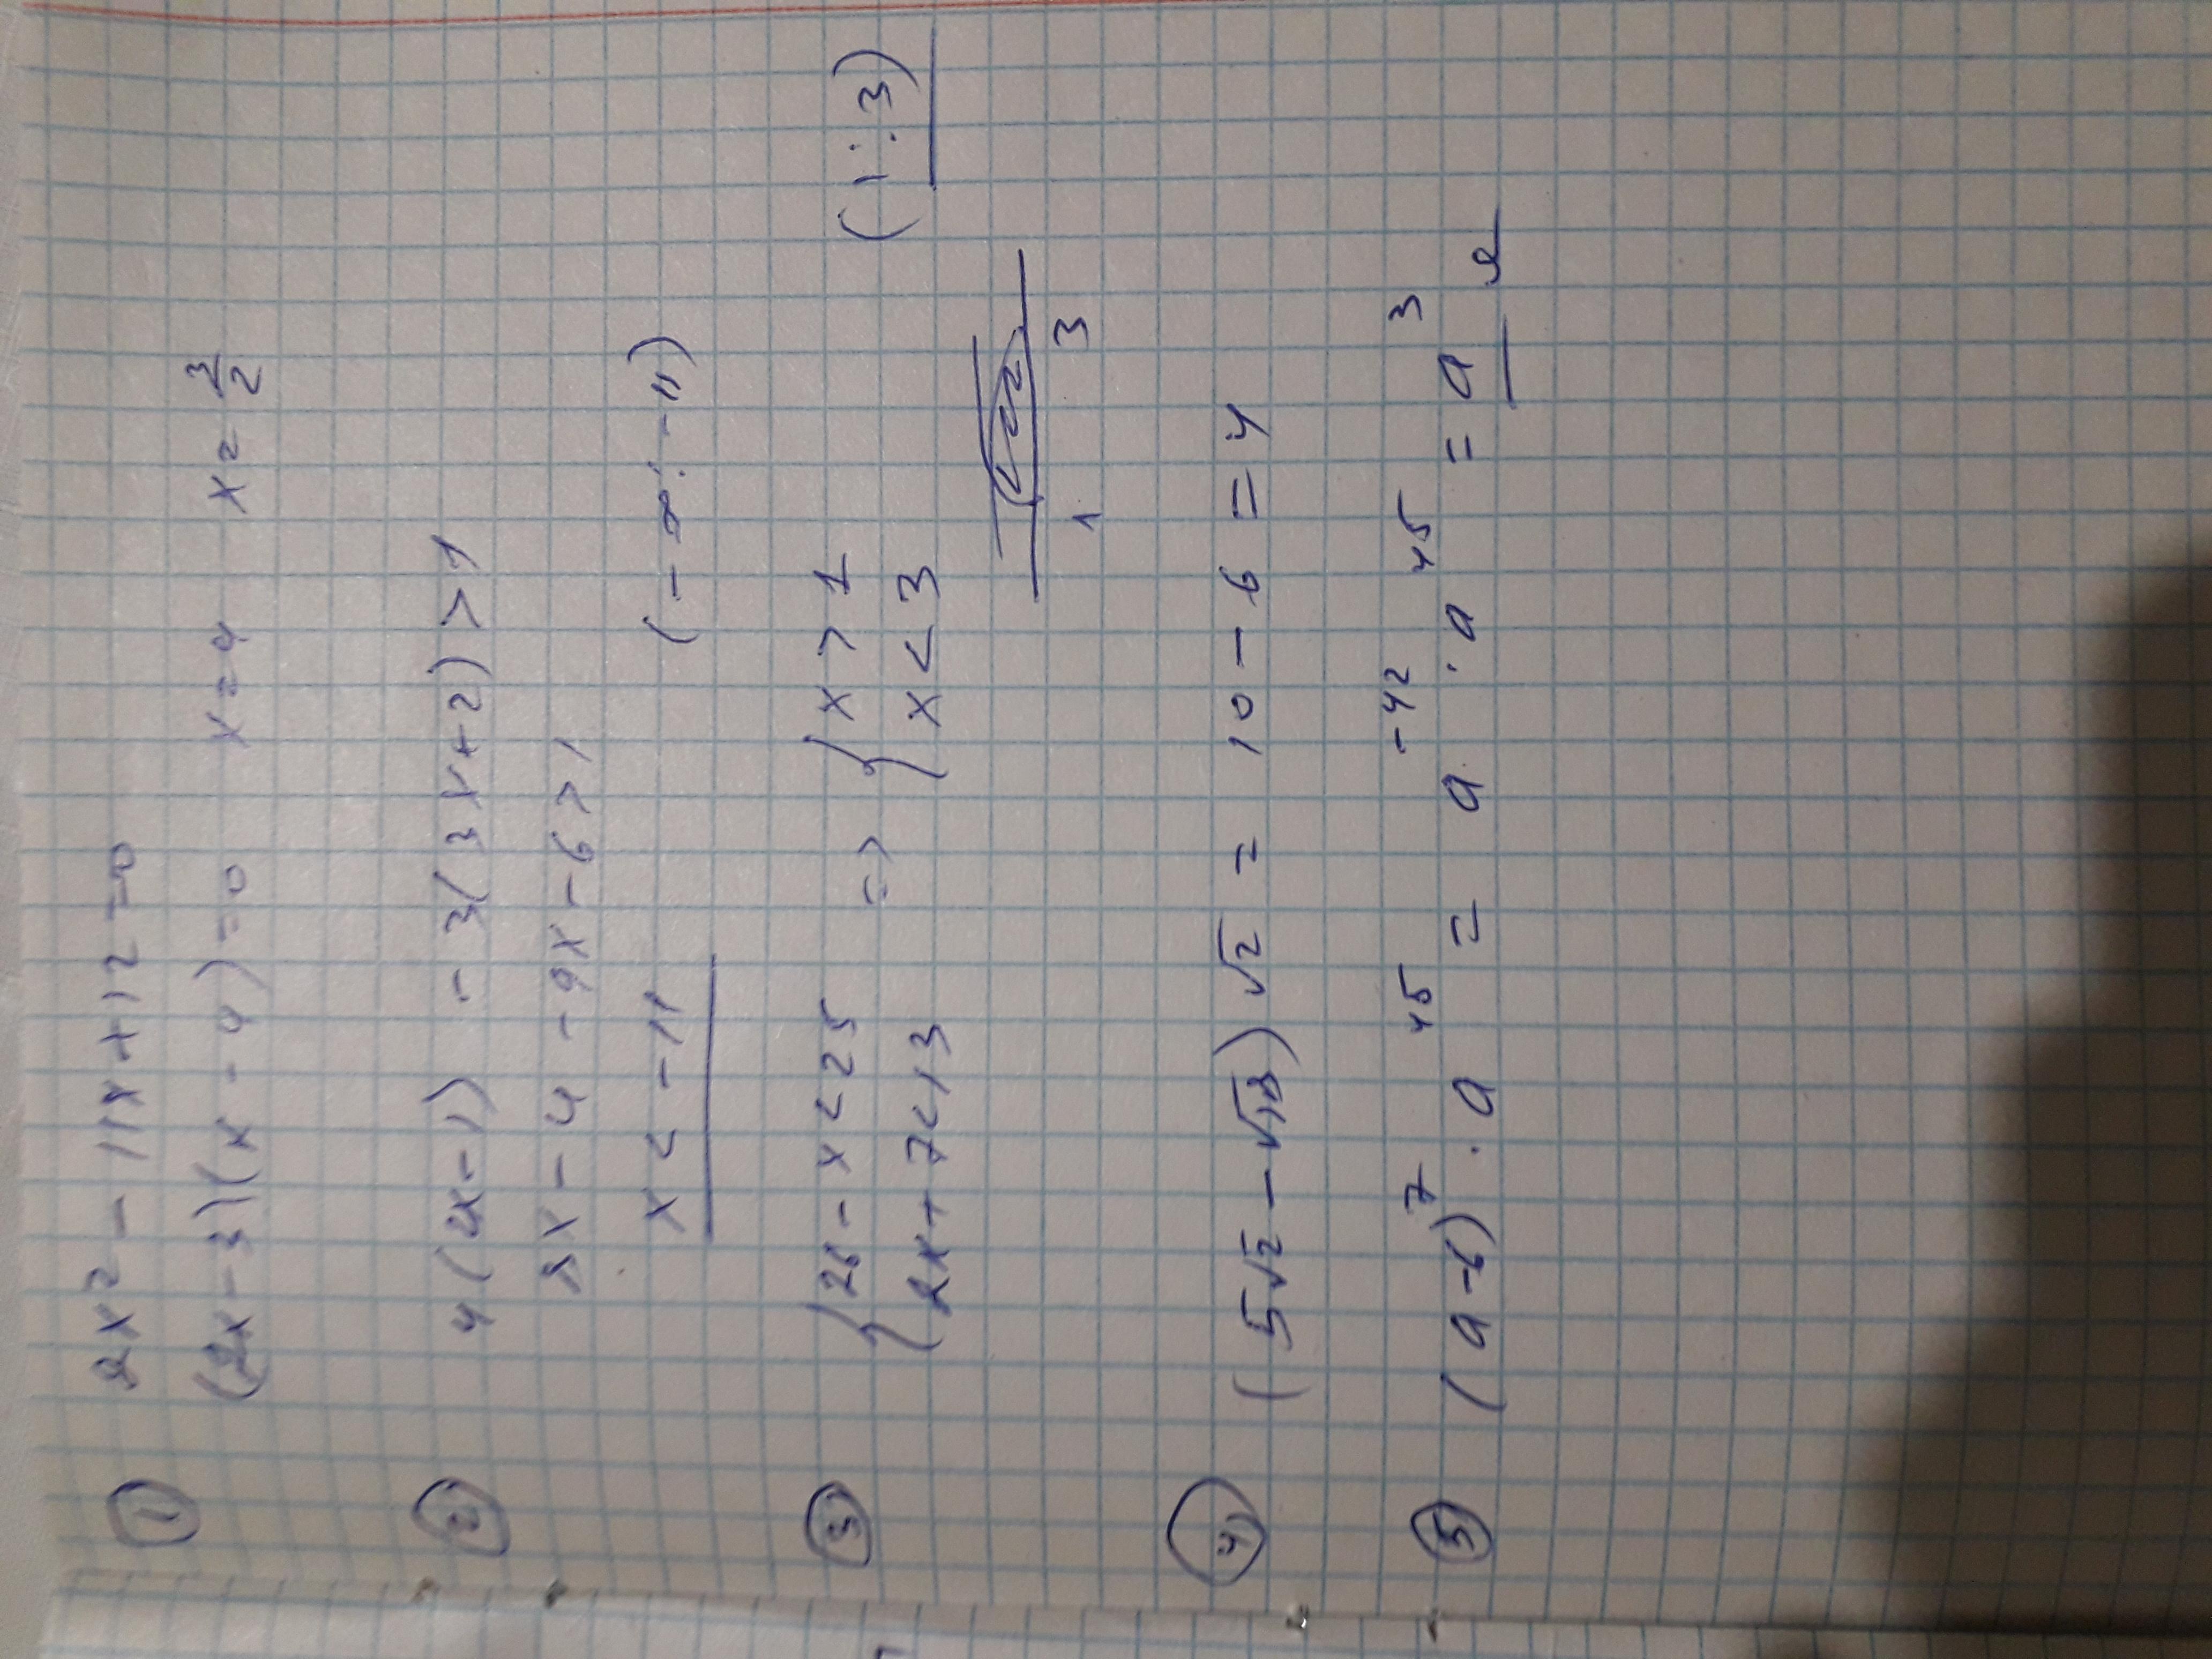 ① 2x² - 11x + 12 = 0
(2x - 3)(x - 4) = 0 x = 4 x = 3/2
② 4(2x - 1) - 3(3x + 2) > 1
8x - 4 - 9x - 6 > 1
x < -11 (-∞; -11)
③ { 26 - x < 25 => { x > 1 (1; 3)
2x + 7 < 13 x < 3
1 3
④ (5√2 - √18)√2 = 10 - 6 = 4
⑤ (a⁻⁶)⁷ · a⁴⁵ = a⁻⁴² · a⁴⁵ = a³